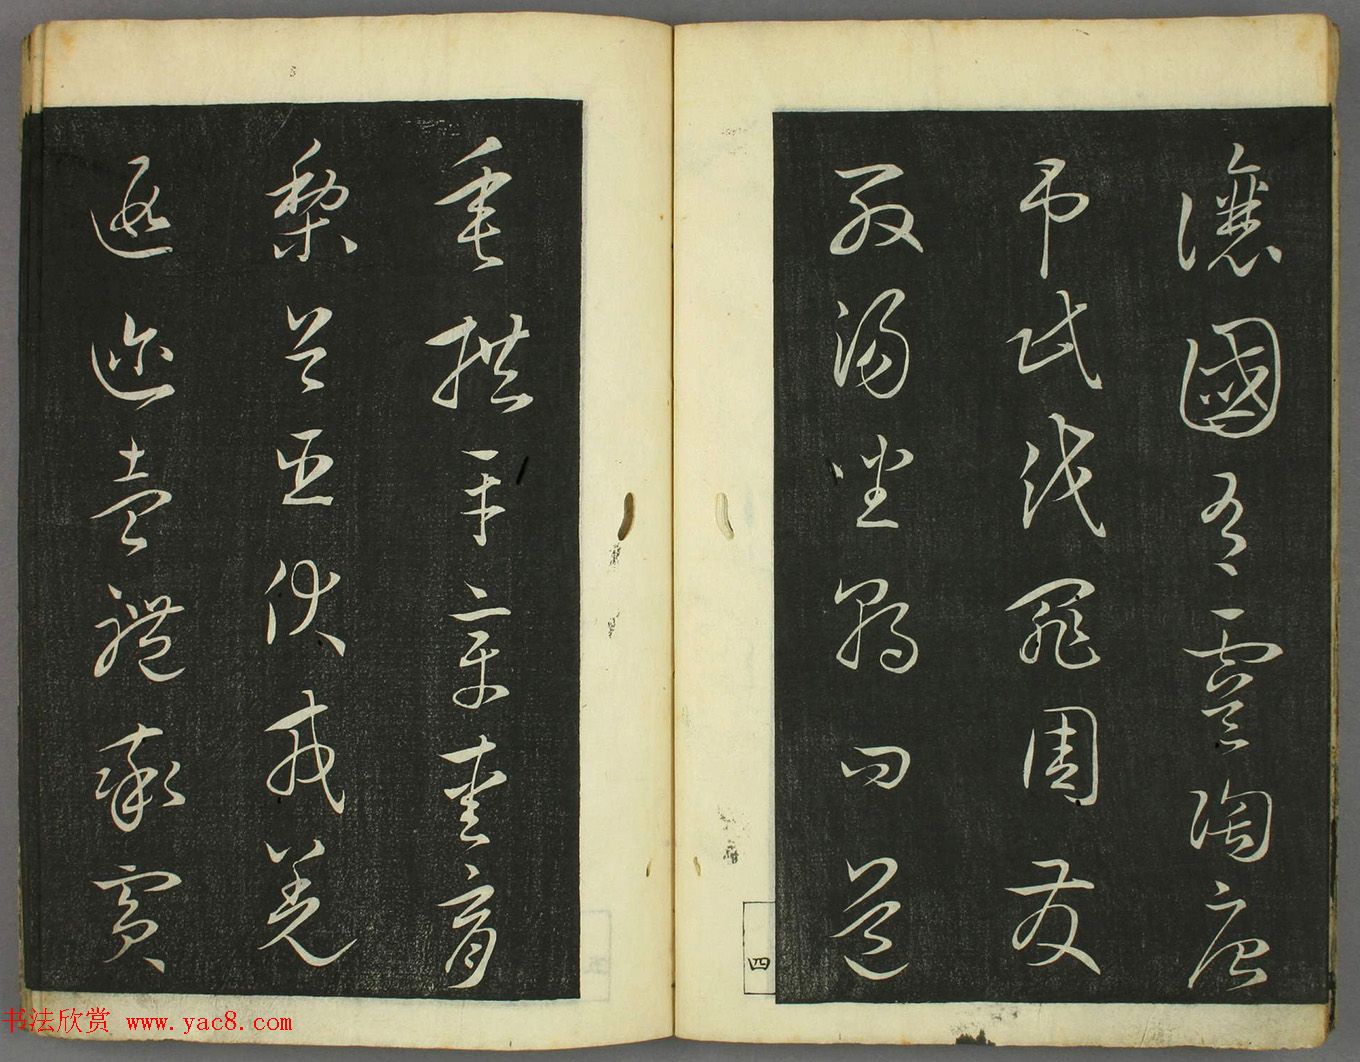 讓國有虞陶唐
弔民伐罪周發
殷湯坐朝問道
垂拱平章愛育
黎首臣伏戎羌
遐迩壹體率賓
四
书法欣赏 www.yac8.com